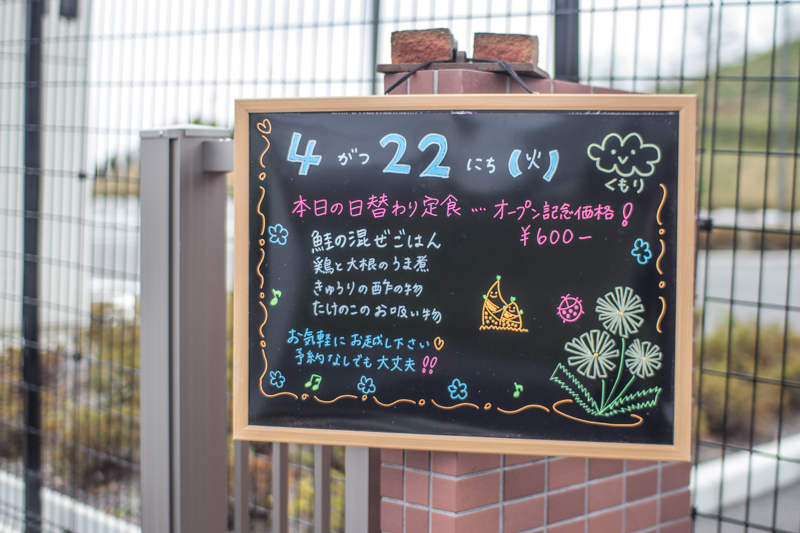 4がつ22にち(火)
くもり
本日の日替わり定食…オープン記念価格!
¥600-
鮭の混ぜごはん
鶏と大根のうま煮
きゅうりの酢の物
たけのこのお吸い物
お気軽にお越し下さい♡
予約なしでも大丈夫!!